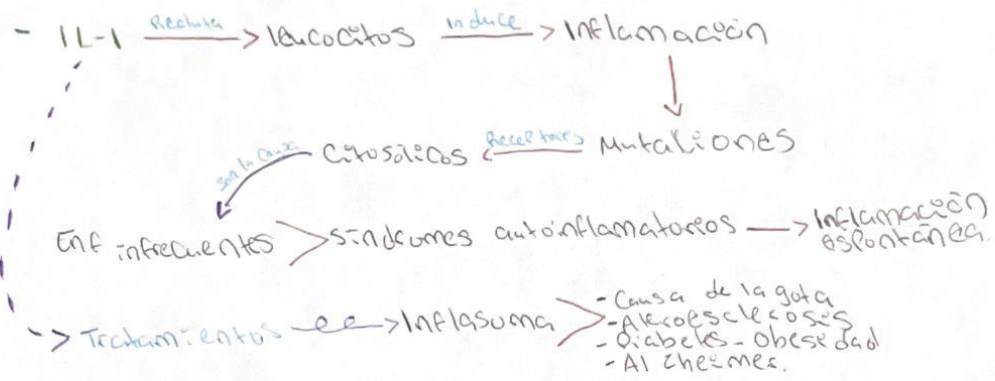 - IL-1 Recluta > leucocitos induce > Inflamación
Citosólicos Receptores Mutaciones
Son la causa
Enf infrecuentes > síndromes autoinflamatorios → Inflamación
espontánea.
Tratamientos → Inflasoma
- Causa de la gota
- Ateroesclerosis
- Diabetes - obesedad
- Alzheimes.